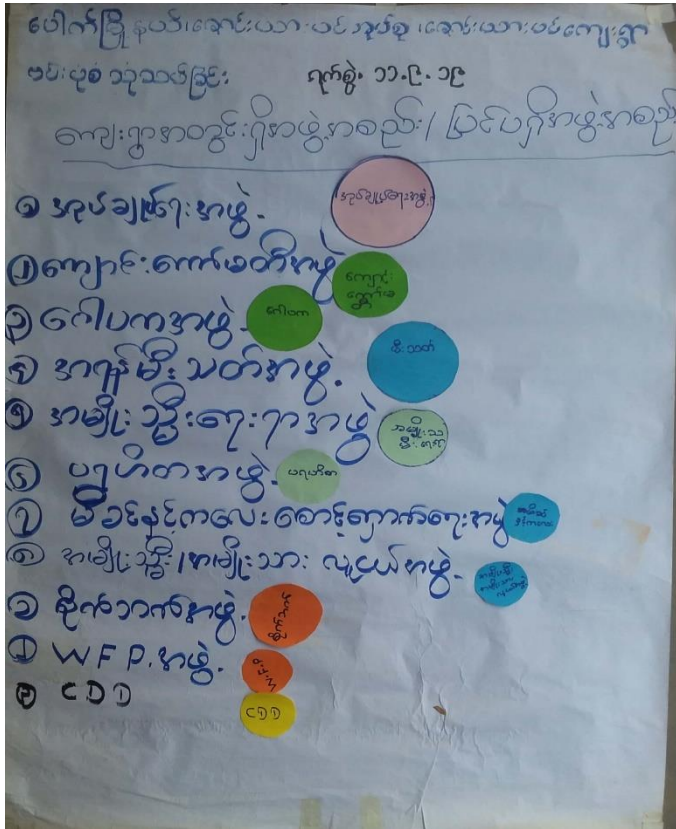 ပေါက်မြို့နယ်၊ချောင်းယားပင်အုပ်စု၊ချောင်းယားပင်ကျေးရွာ
ဗင်းပုံစံ သုံးသပ်ခြင်း ရက်စွဲ. ၁၁.၉.၁၉
ကျေးရွာအတွင်းရှိအဖွဲ့အစည်း/ပြင်ပရှိအဖွဲ့အစည်း
၁ အုပ်ချုပ်ရေးအဖွဲ့. အုပ်ချုပ်ရေးအဖွဲ့
၂ ကျောင်းကော်မတီအဖွဲ့ ကျောင်းကော်မ
၃ ဂေါပကအဖွဲ့. ဂေါပက
၄ အရန်မီးသတ်အဖွဲ့. မီးသတ်
၅ အမျိုးသ္မီးရေးရာအဖွဲ့ အမျိုးသ္မီးရေးရာ
၆ ပရဟိတအဖွဲ့. ပရဟိတ
၇ မိခင်နှင့်ကလေးစောင့်ရှောက်ရေးအဖွဲ့ မိခင်နှင့်ကလေး
၈ အမျိုးသ္မီး/အမျိုးသား လူငယ်အဖွဲ့.
၁ စိုက်ဘဏ်အဖွဲ့. စိုက်ဘဏ်
၂ WFP.အဖွဲ့. W.F.P
၃ CDD CDD